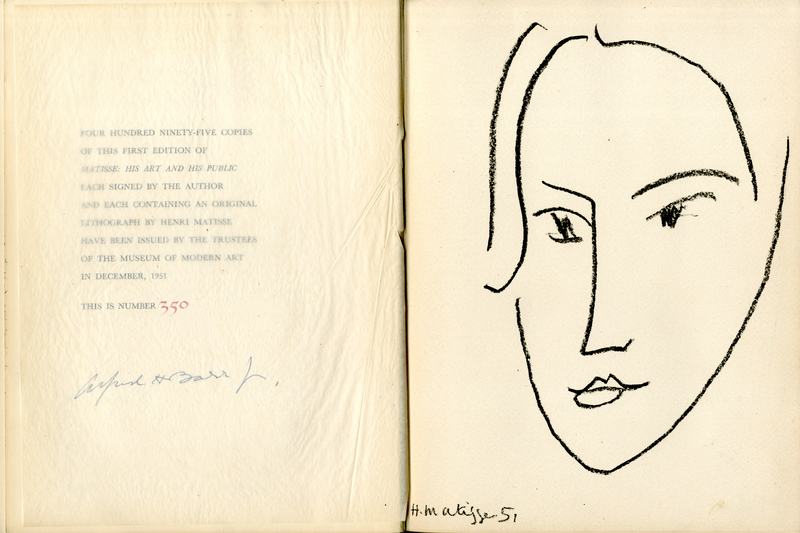 FOUR HUNDRED NINETY-FIVE COPIES
OF THIS FIRST EDITION OF
MATISSE: HIS ART AND HIS PUBLIC
EACH SIGNED BY THE AUTHOR
AND EACH CONTAINING AN ORIGINAL
LITHOGRAPH BY HENRI MATISSE
HAVE BEEN ISSUED BY THE TRUSTEES
OF THE MUSEUM OF MODERN ART
IN DECEMBER, 1951
THIS IS NUMBER 350
Alfred H Barr Jr.
H. Matisse 51